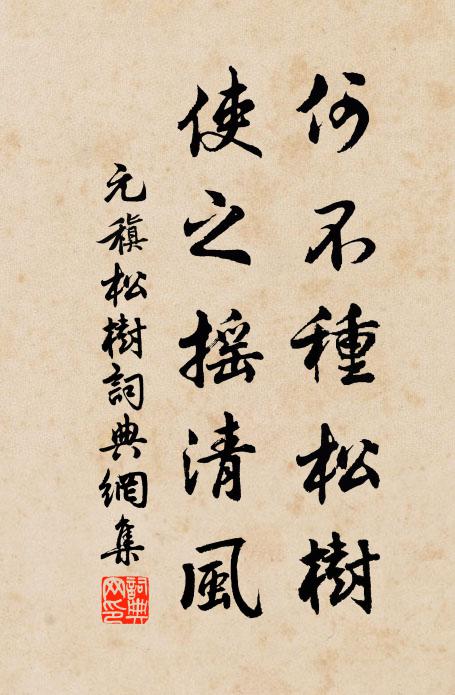 何不種松樹
使之搖清風
元稹松樹詞典網集
詞典網印